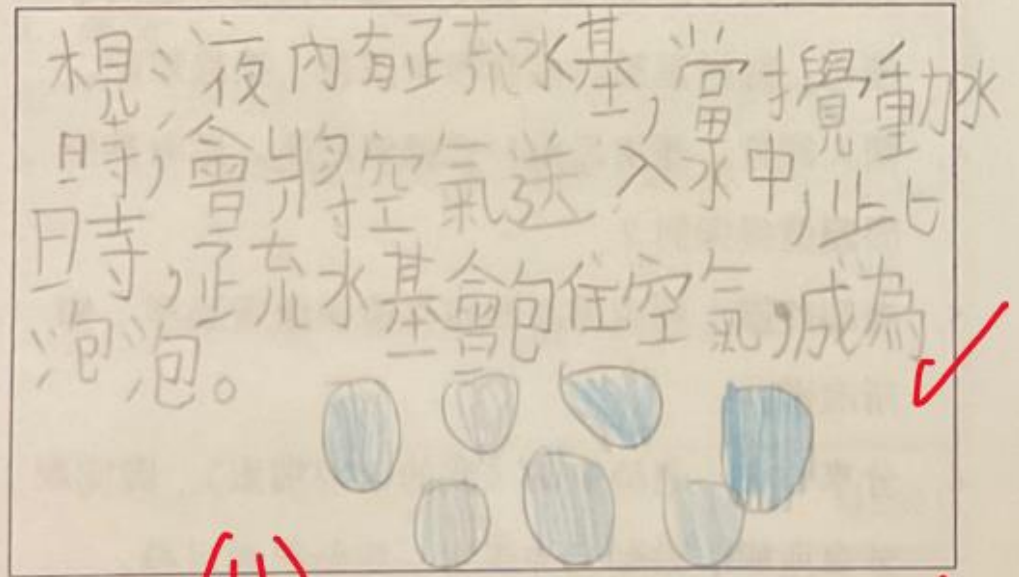 想:液內有疏水基,當攪動水
時,會將空氣送入水中,此
時,疏水基會包住空氣,成為
泡泡。
(11)